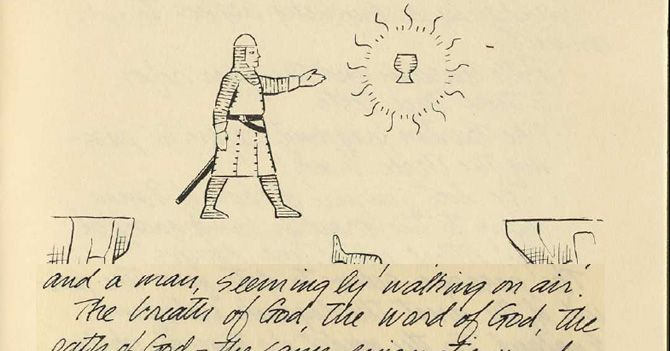 and a man, seemingly 'walking on air'.
The breath of God, the word of God, the
path of God – the